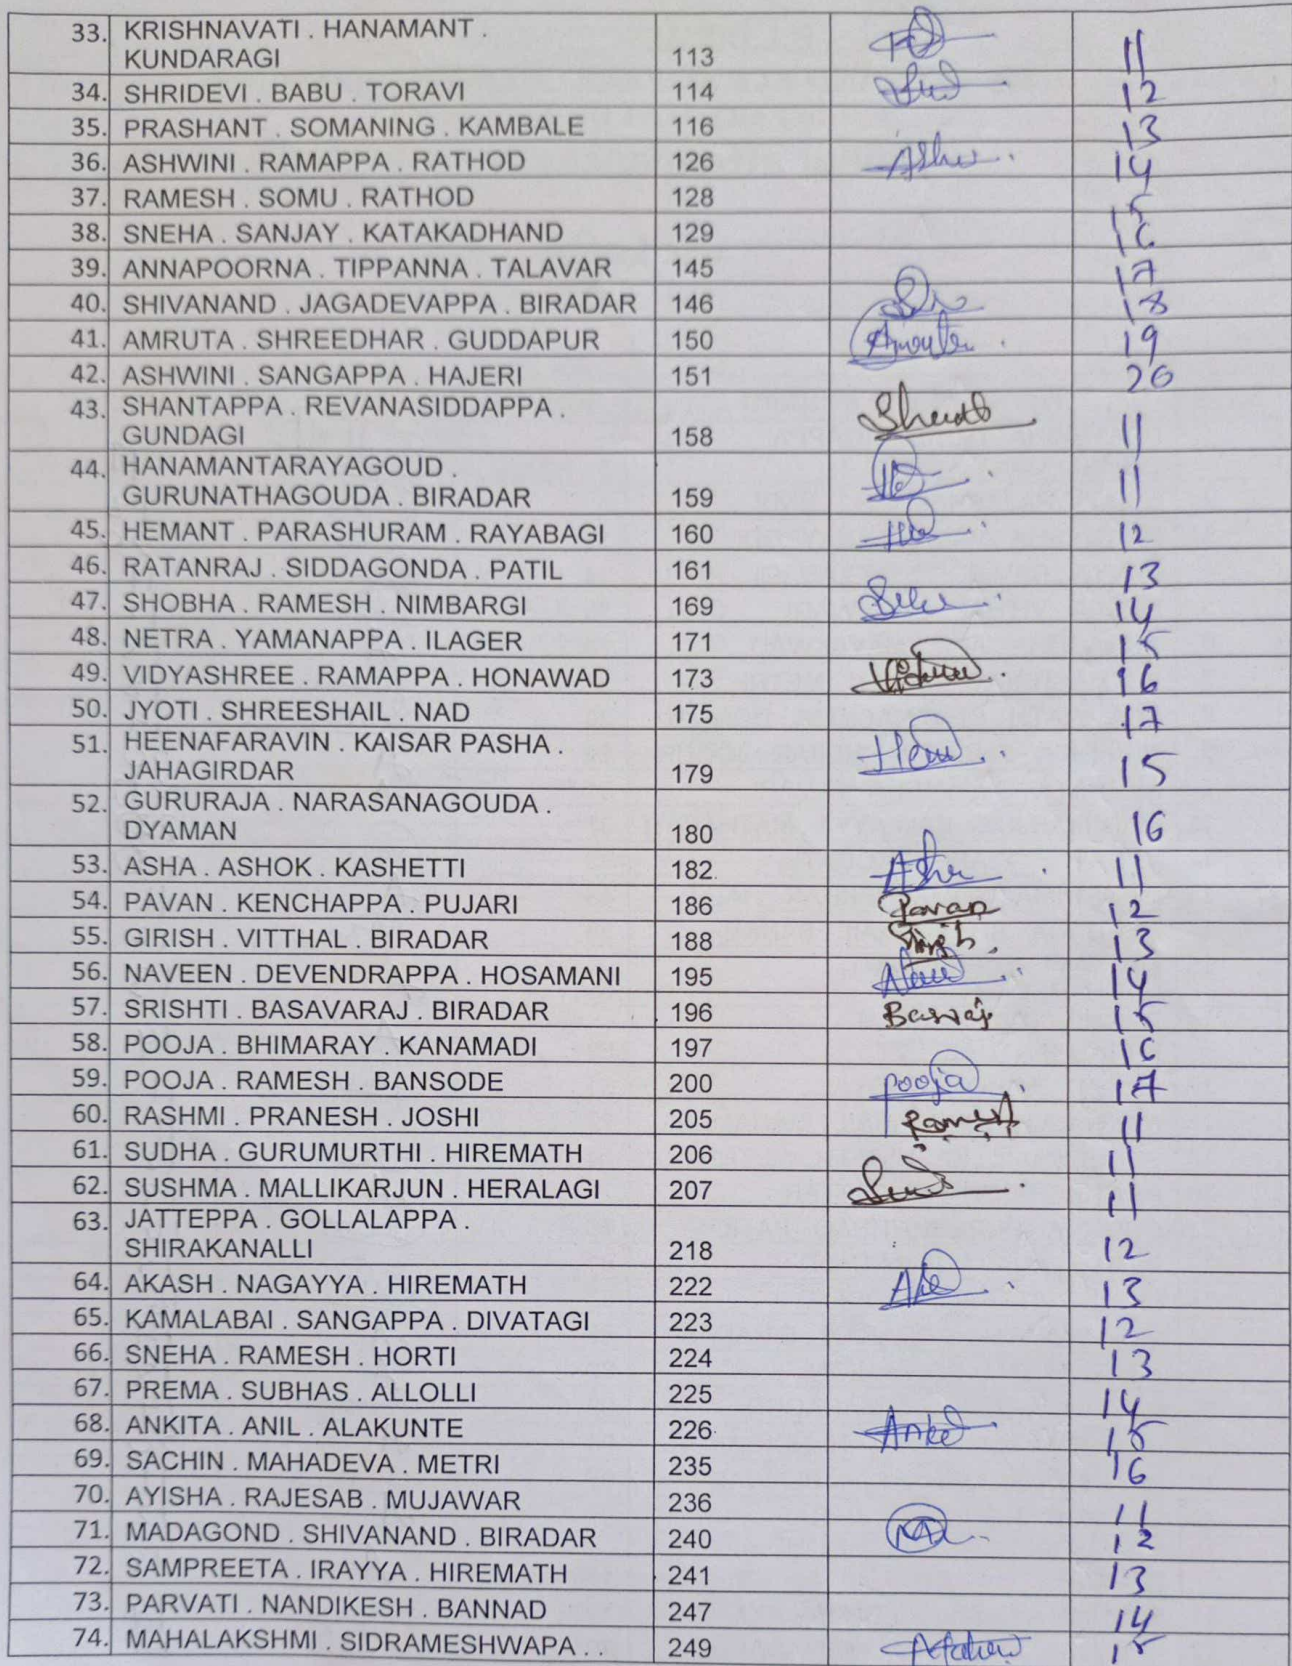 33. KRISHNAVATI . HANAMANT .
KUNDARAGI 113 11
34. SHRIDEVI . BABU . TORAVI 114 12
35. PRASHANT . SOMANING . KAMBALE 116 13
36. ASHWINI . RAMAPPA . RATHOD 126 14
37. RAMESH . SOMU . RATHOD 128 15
38. SNEHA . SANJAY . KATAKADHAND 129 16
39. ANNAPOORNA . TIPPANNA . TALAVAR 145 17
40. SHIVANAND . JAGADEVAPPA . BIRADAR 146 18
41. AMRUTA . SHREEDHAR . GUDDAPUR 150 19
42. ASHWINI . SANGAPPA . HAJERI 151 20
43. SHANTAPPA . REVANASIDDAPPA .
GUNDAGI 158 11
44. HANAMANTARAYAGOUD .
GURUNATHAGOUDA . BIRADAR 159 11
45. HEMANT . PARASHURAM . RAYABAGI 160 12
46. RATANRAJ . SIDDAGONDA . PATIL 161 13
47. SHOBHA . RAMESH . NIMBARGI 169 14
48. NETRA . YAMANAPPA . ILAGER 171 15
49. VIDYASHREE . RAMAPPA . HONAWAD 173 16
50. JYOTI . SHREESHAIL . NAD 175 17
51. HEENAFARAVIN . KAISAR PASHA .
JAHAGIRDAR 179 15
52. GURURAJA . NARASANAGOUDA .
DYAMAN 180 16
53. ASHA . ASHOK . KASHETTI 182 11
54. PAVAN . KENCHAPPA . PUJARI 186 Pavan 12
55. GIRISH . VITTHAL . BIRADAR 188 13
56. NAVEEN . DEVENDRAPPA . HOSAMANI 195 14
57. SRISHTI . BASAVARAJ . BIRADAR 196 15
58. POOJA . BHIMARAY . KANAMADI 197 16
59. POOJA . RAMESH . BANSODE 200 pooja 17
60. RASHMI . PRANESH . JOSHI 205 11
61. SUDHA . GURUMURTHI . HIREMATH 206 11
62. SUSHMA . MALLIKARJUN . HERALAGI 207 11
63. JATTEPPA . GOLLALAPPA .
SHIRAKANALLI 218 12
64. AKASH . NAGAYYA . HIREMATH 222 13
65. KAMALABAI . SANGAPPA . DIVATAGI 223 12
66. SNEHA . RAMESH . HORTI 224 13
67. PREMA . SUBHAS . ALLOLLI 225 14
68. ANKITA . ANIL . ALAKUNTE 226 15
69. SACHIN . MAHADEVA . METRI 235 16
70. AYISHA . RAJESAB . MUJAWAR 236 11
71. MADAGOND . SHIVANAND . BIRADAR 240 12
72. SAMPREETA . IRAYYA . HIREMATH 241 13
73. PARVATI . NANDIKESH . BANNAD 247 14
74. MAHALAKSHMI . SIDRAMESHWAPA . . 249 15